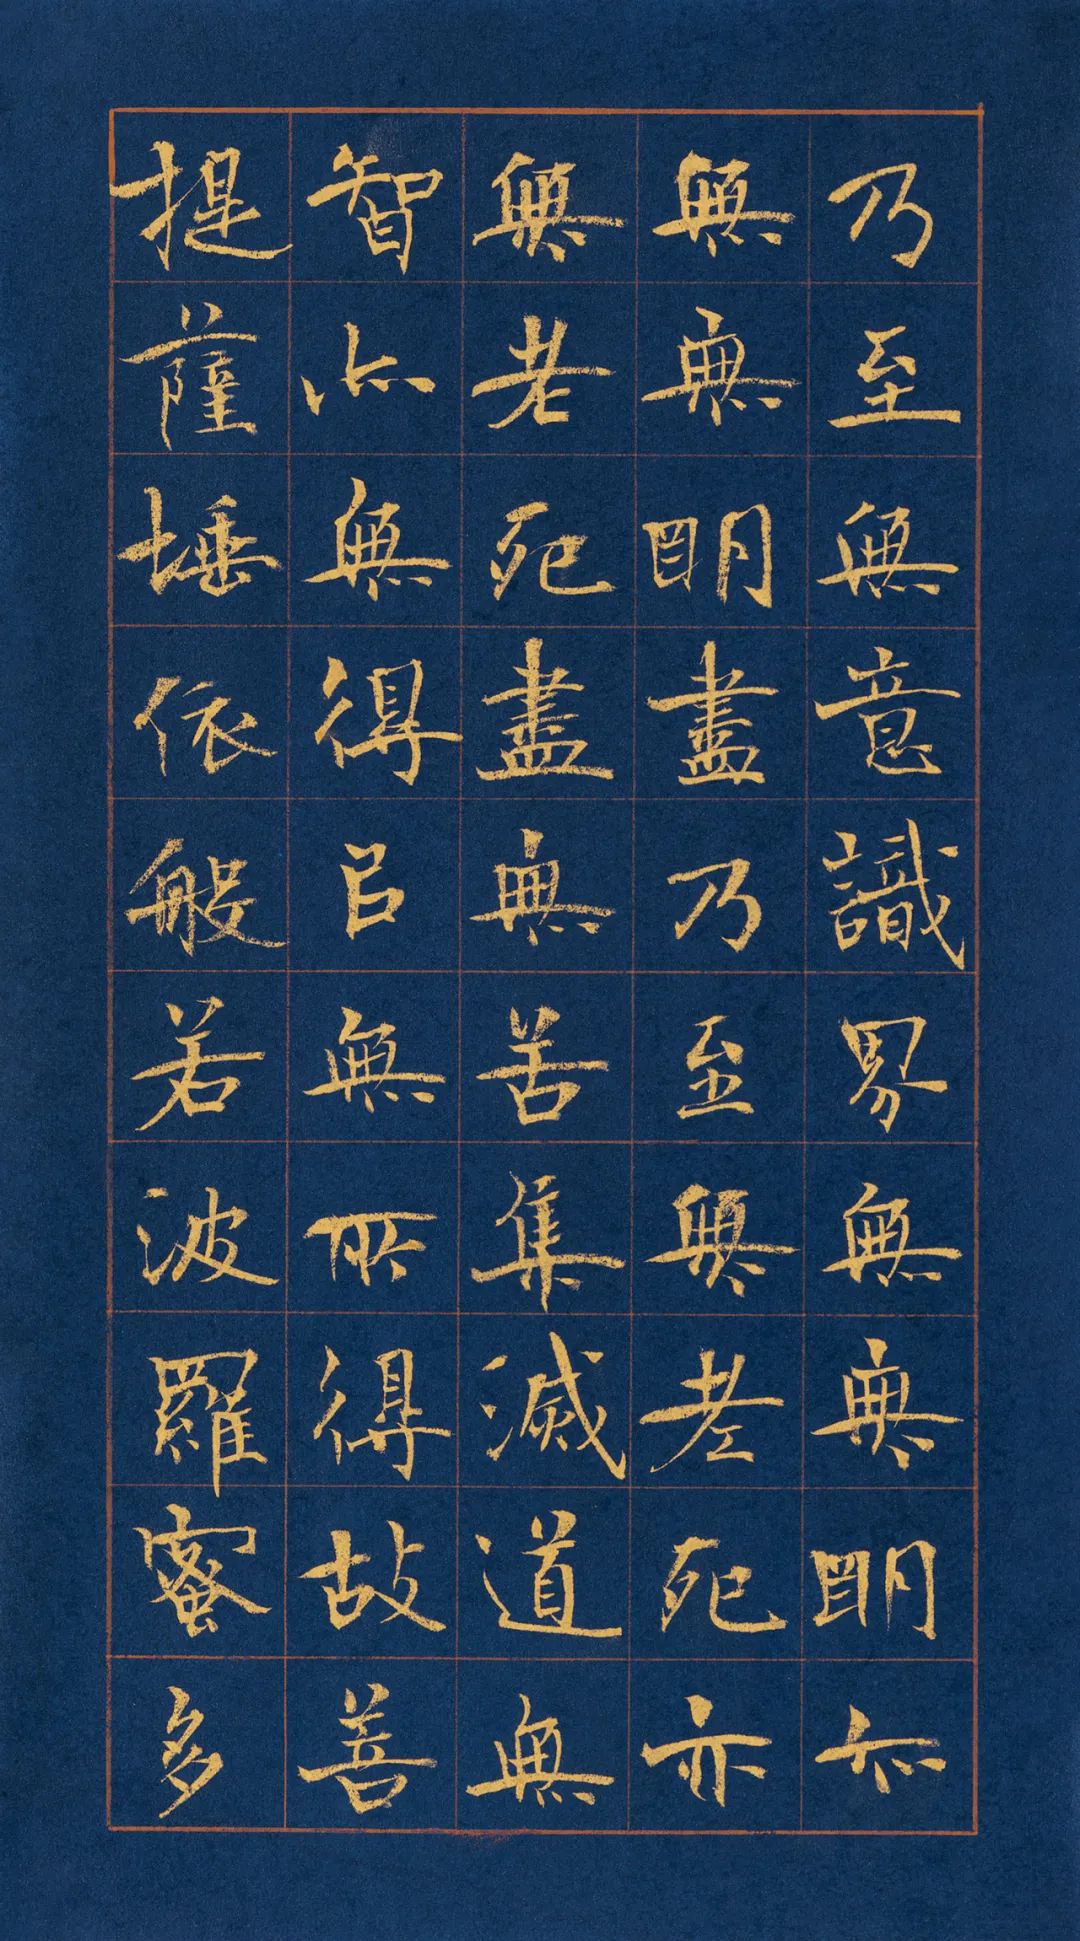 乃至無意識界無無明亦
無無明盡乃至無老死亦
無老死盡無苦集滅道無
智亦無得以無所得故菩
提薩埵依般若波羅蜜多